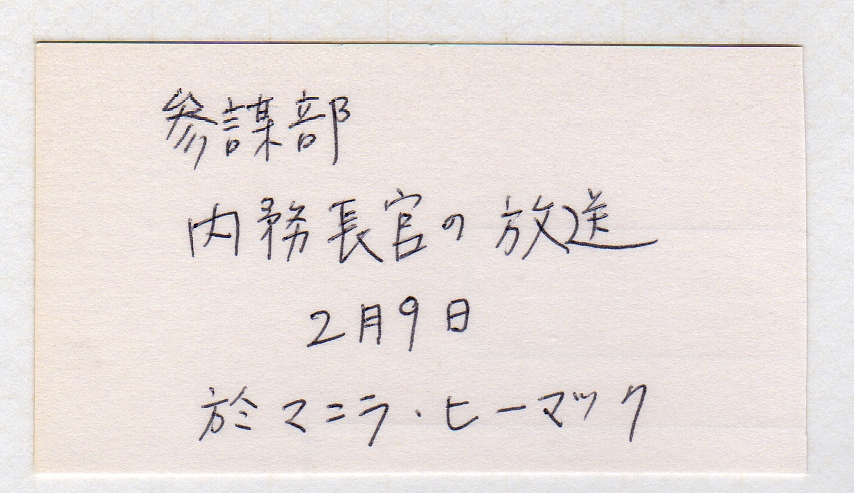 参謀部
内務長官の放送
2月9日
於マニラ・ヒーマック